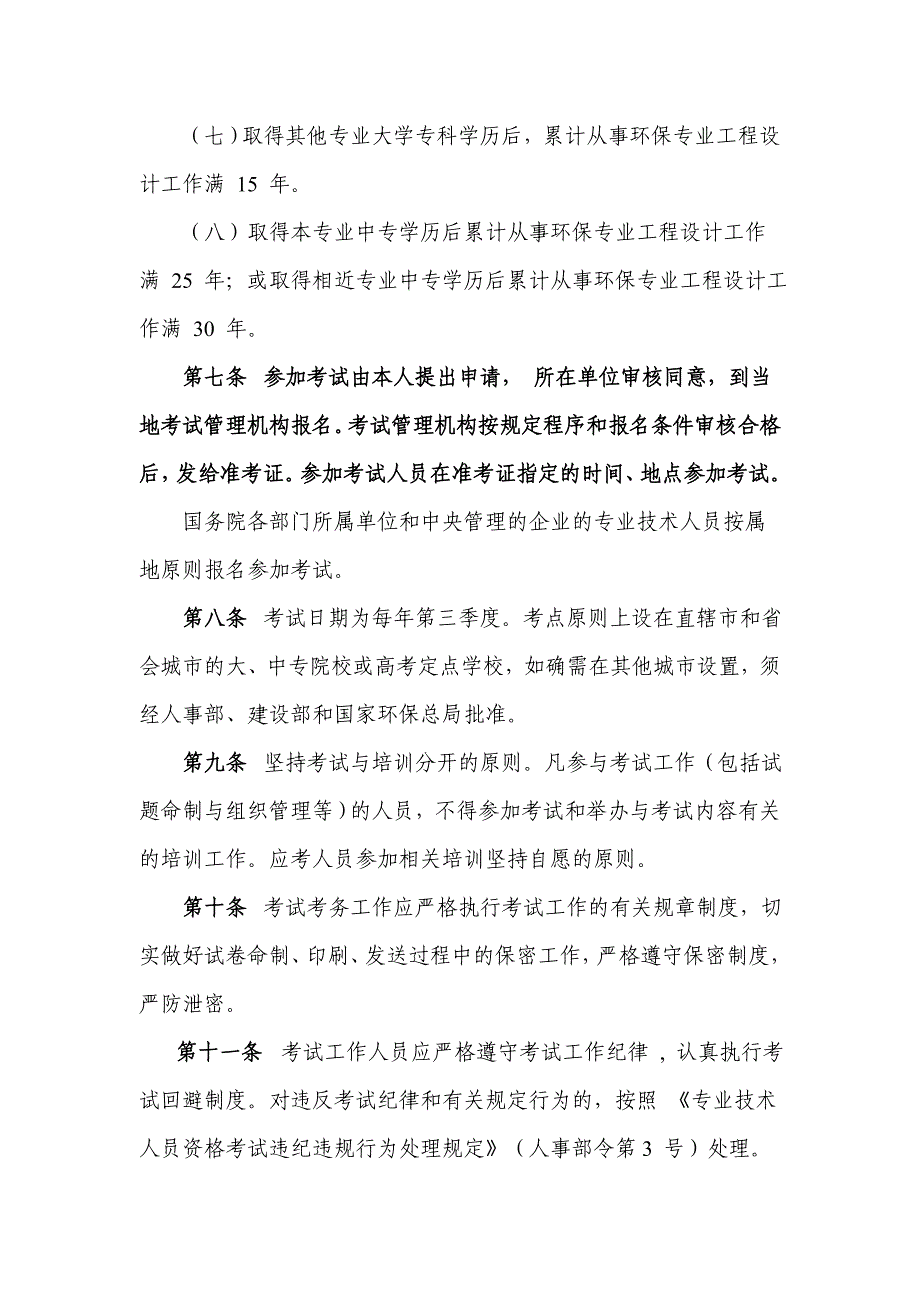 （七）取得其他专业大学专科学历后，累计从事环保专业工程设
计工作满 15 年。
（八）取得本专业中专学历后累计从事环保专业工程设计工作
满 25 年；或取得相近专业中专学历后累计从事环保专业工程设计工
作满 30 年。
第七条 参加考试由本人提出申请， 所在单位审核同意，到当
地考试管理机构报名。考试管理机构按规定程序和报名条件审核合格
后，发给准考证。参加考试人员在准考证指定的时间、地点参加考试。
国务院各部门所属单位和中央管理的企业的专业技术人员按属
地原则报名参加考试。
第八条 考试日期为每年第三季度。考点原则上设在直辖市和省
会城市的大、中专院校或高考定点学校，如确需在其他城市设置，须
经人事部、建设部和国家环保总局批准。
第九条 坚持考试与培训分开的原则。凡参与考试工作（包括试
题命制与组织管理等）的人员，不得参加考试和举办与考试内容有关
的培训工作。应考人员参加相关培训坚持自愿的原则。
第十条 考试考务工作应严格执行考试工作的有关规章制度，切
实做好试卷命制、印刷、发送过程中的保密工作，严格遵守保密制度，
严防泄密。
第十一条 考试工作人员应严格遵守考试工作纪律 , 认真执行考
试回避制度。对违反考试纪律和有关规定行为的，按照 《专业技术
人员资格考试违纪违规行为处理规定》（人事部令第 3 号）处理。